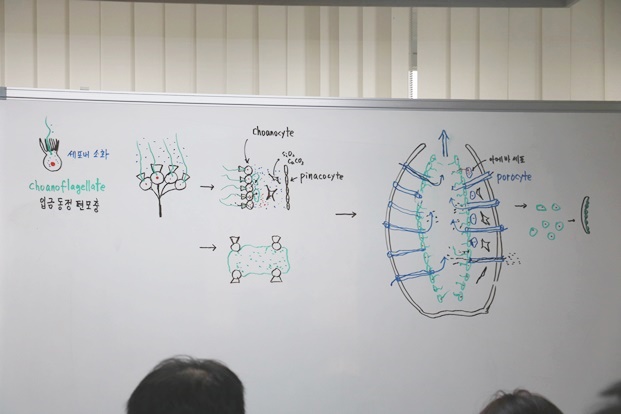 세포내 소화
choanoflagellate
입금 동정 편모충
choanocyte
SiO₂
CaCO₃
pinacocyte
아메바 세포
porocyte